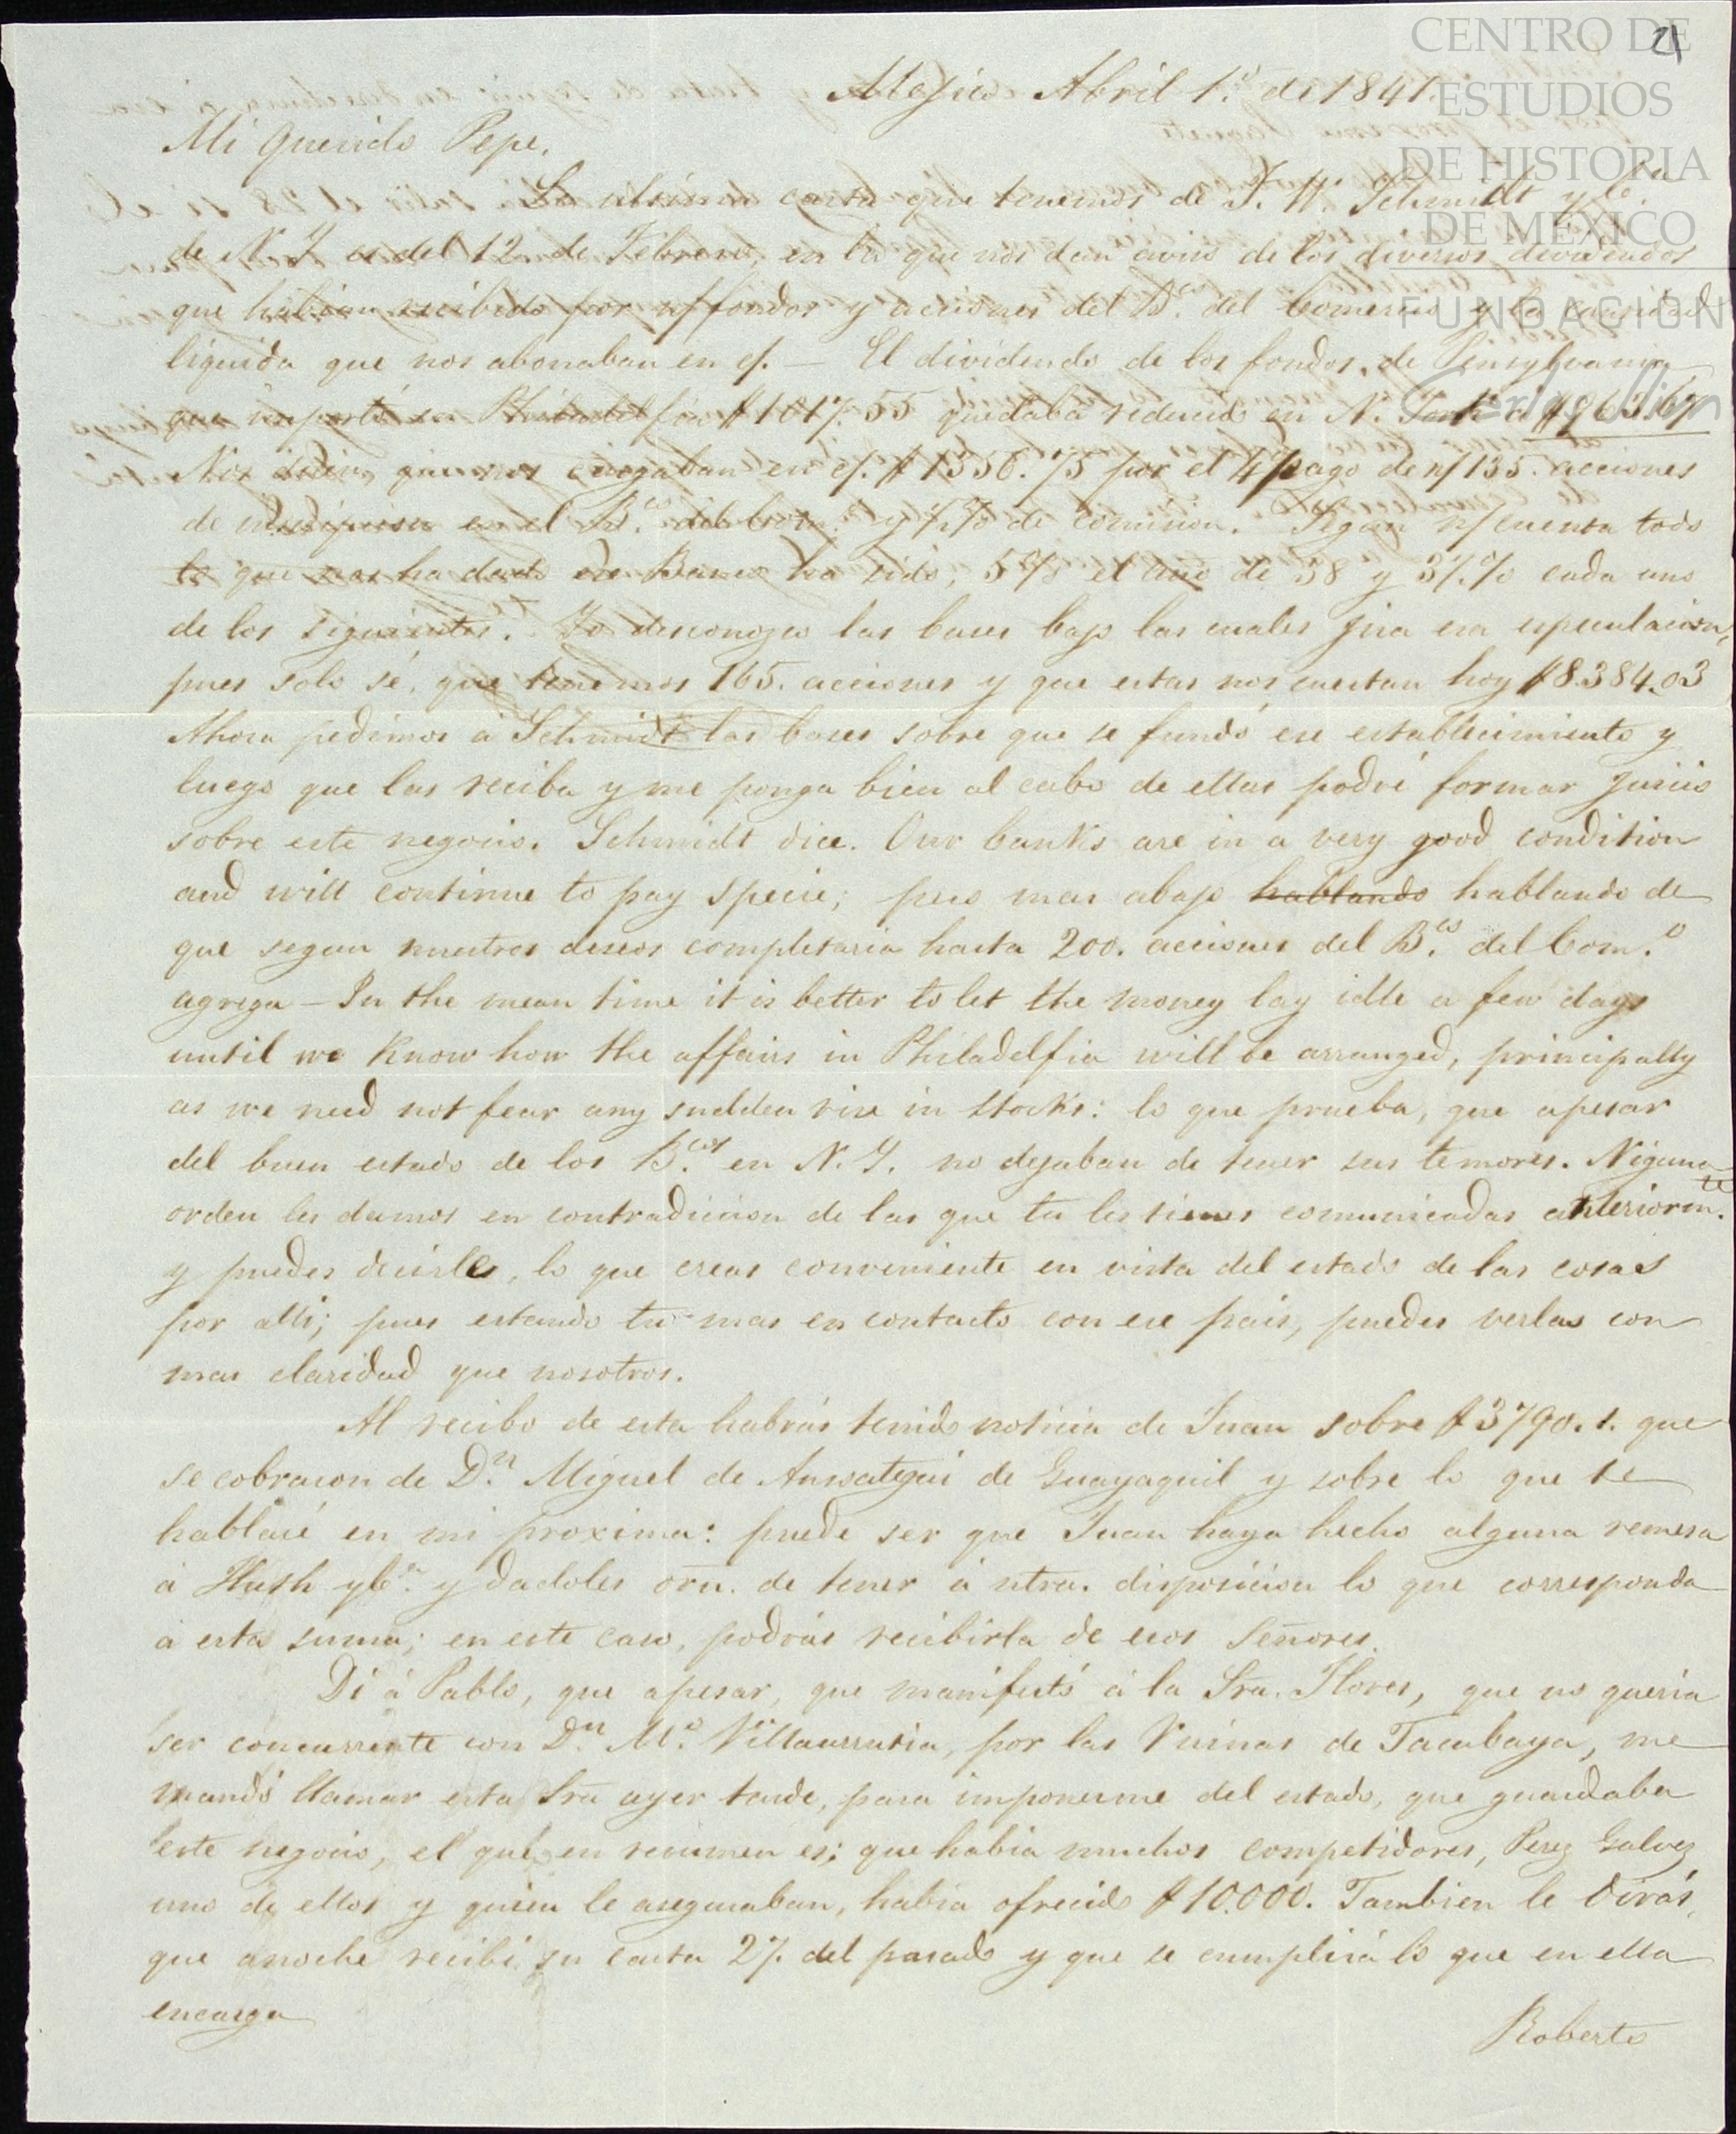 CENTRO DE
ESTUDIOS
DE HISTORIA
DE MÉXICO
FUNDACIÓN
4
Mejico Abril 1.º de 1841.
Mi querido Pepe,
La ultima carta que tenemos de J. W. Schmidt y Cª.
de N. Y. es del 12 de Febrero, en la que nos dan aviso de los diversos dividendos
que habian recibido por n/ fondos y acciones del B.co del Comercio y la cantidad
liquida que nos abonaban en c/. — El dividendo de los fondos, de Pensylvania
que importó en Philadelfia $1017.55 quedaba reducido en N. York à $963.67
Nos dicen, que nos cargaban en c/. $1356.75 por el 4º pago de n/ 135. acciones
de inscripcion en el B.co del Com.º y ½% de comision. Segun n/ cuenta todo
lo que nos ha dado ese Banco ha sido, 5% el año de 38 y 3½% cada uno
de los siguientes. Yo desconozco las bases bajo las cuales jira esa especulacion,
pues solo sé, que tenemos 165. acciones y que estas nos cuestan hoy $8384.03
Ahora pedimos à Schmidt las bases sobre que se fundó ese establecimiento y
luego que las reciba y me ponga bien al cabo de ellas podré formar juicio
sobre este negocio. Schmidt dice. Our banks are in a very good condition
and will continue to pay specie; pero mas abajo hablando hablando de
que segun nuestros deseos completaria hasta 200. acciones del B.co del Com.º
agrega — In the mean time it is better to let the money lay idle a few days
until we know how the affairs in Philadelfia will be arranged, principally
as we need not fear any sudden rise in stocks: lo que prueba, que apesar
del buen estado de los B.cos en N. Y. no dejaban de tener sus temores. Niguna
orden les damos en contradicion de las que tu les tienes comunicadas anteriorm.te
y puedes decirles, lo que creas conveniente en vista del estado de las cosas
por alli; pues estando tu mas en contacto con ese pais, puedes verlas con
mas claridad que nosotros.
Al recibo de esta habrás tenido noticia de Juan sobre $3790.1. que
se cobraron de D.n Miguel de Anzoategui de Guayaquil y sobre lo que te
hablaré en mi proxima: puede ser que Juan haya hecho alguna remesa
à Huth y Cª. y dadoles orn. de tener à ntra. disposicion lo que corresponda
à esta suma; en este caso, podrás recibirla de esos Señores.
Di à Pablo, que apesar, que manifestó à la Sra. Flores, que no queria
ser concurrente con D.n M.º Villaurrutia, por las Ruinas de Tacubaya, me
mandó llamar esta Sra ayer tarde, para imponerme del estado, que guardaba
este negocio, el que en resumen es; que habia muchos competidores, Perez Galvez
uno de ellos y quien le aseguraban, habia ofrecido $10.000. Tambien le dirás,
que anoche recibi su carta 27. del pasado y que se cumplirá lo que en ella
encarga
Roberto